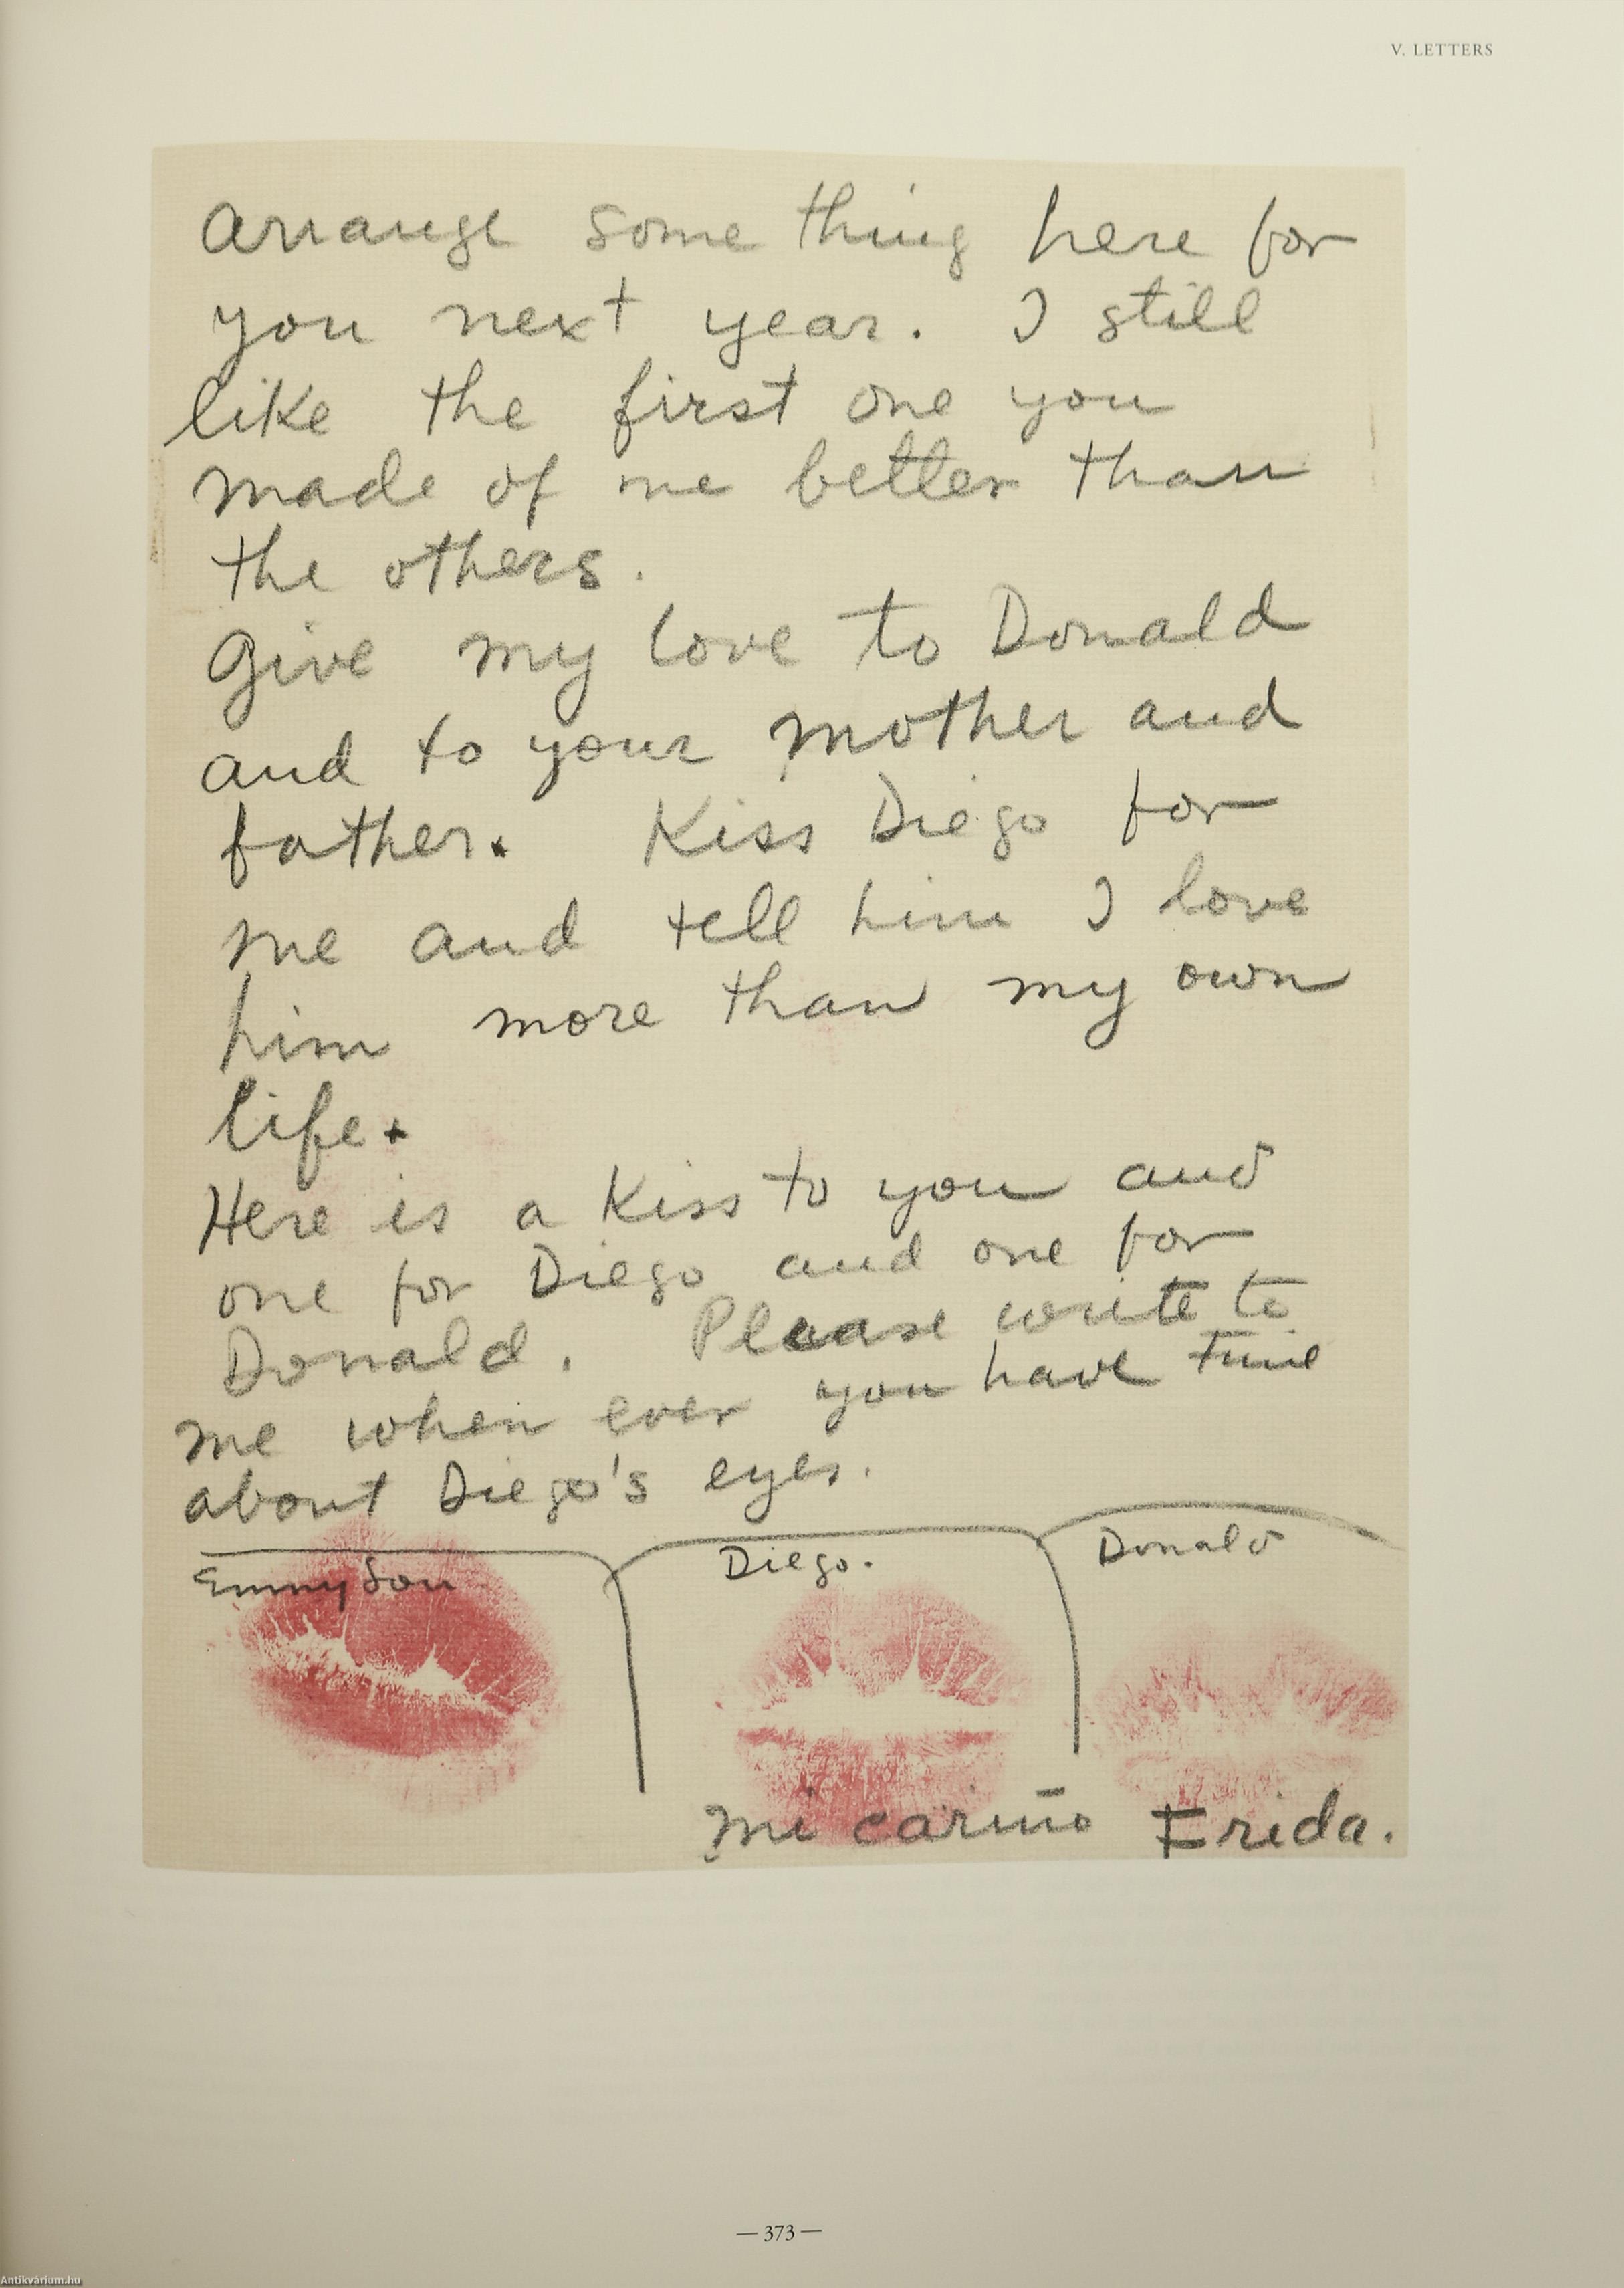 V. LETTERS
arrange some thing here for
you next year. I still
like the first one you
made of me better than
the others.
Give my love to Donald
and to your mother and
father. Kiss Diego for
me and tell him I love
him more than my own
life.
Here is a Kiss to you and
one for Diego and one for
Donald. Please write to
me when ever you have time
about Diego's eyes.
Emmy Lou
Diego.
Donald
Mi cariño Frida.
— 373 —
Antikvárium.hu